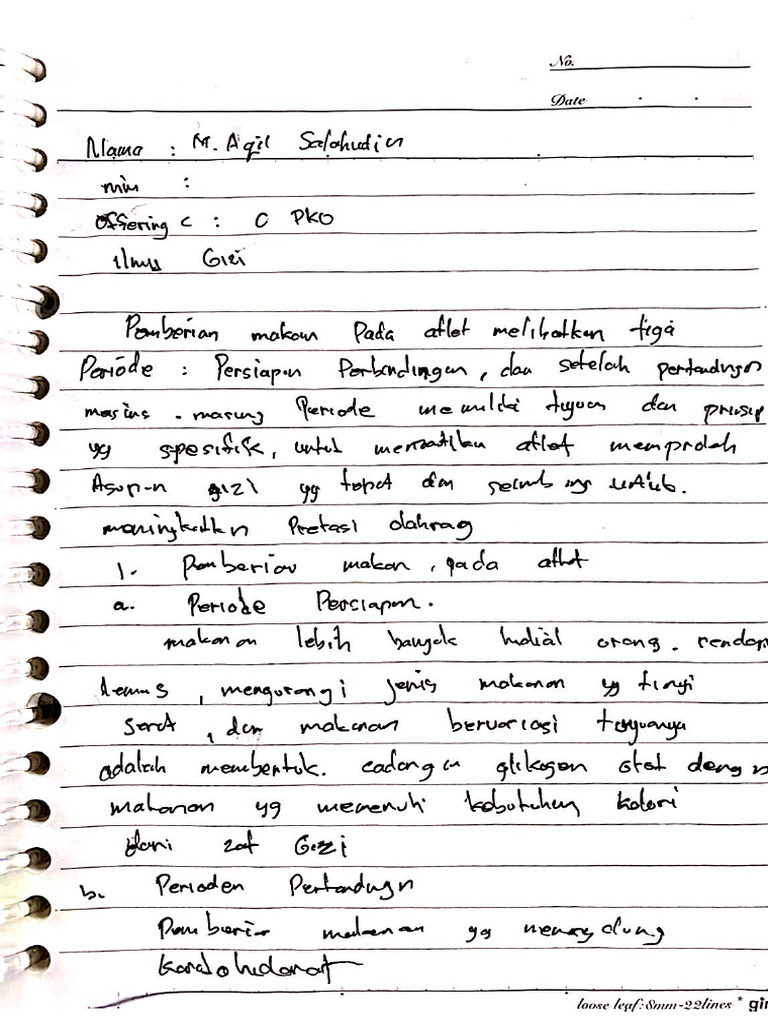 No.
Date
Nama : M. Aqil Salahudin
nim :
Offering C : C PKO
Ilmu Gizi
Pemberian makan Pada atlet melibatkan tiga
Periode : Persiapan Pertandingan, dan setelah pertandingan
masing - masing Periode memiliki tujuan dan prinsip
yg spesifik, untuk memastikan atlet memproleh
Asupan gizi yg tepat dan seimbang untuk.
meningkatkan Pretasi olahrag
1. Pemberian makan, pada atlet
a. Periode Persiapan.
makanan lebih banyak hidrat arang. rendah
lemak, mengurangi jenis makanan yg tinggi
serat, dan makanan bervariasi tujuanya
adalah membentuk. cadangan glikogen otot dengan
makanan yg memenuhi kebutuhan kalori
dari zat Gizi
b. Perioden Pertandingn
Pemberian makanan yg mengandung
Karbohidarat
loose leaf:8mm-22lines *